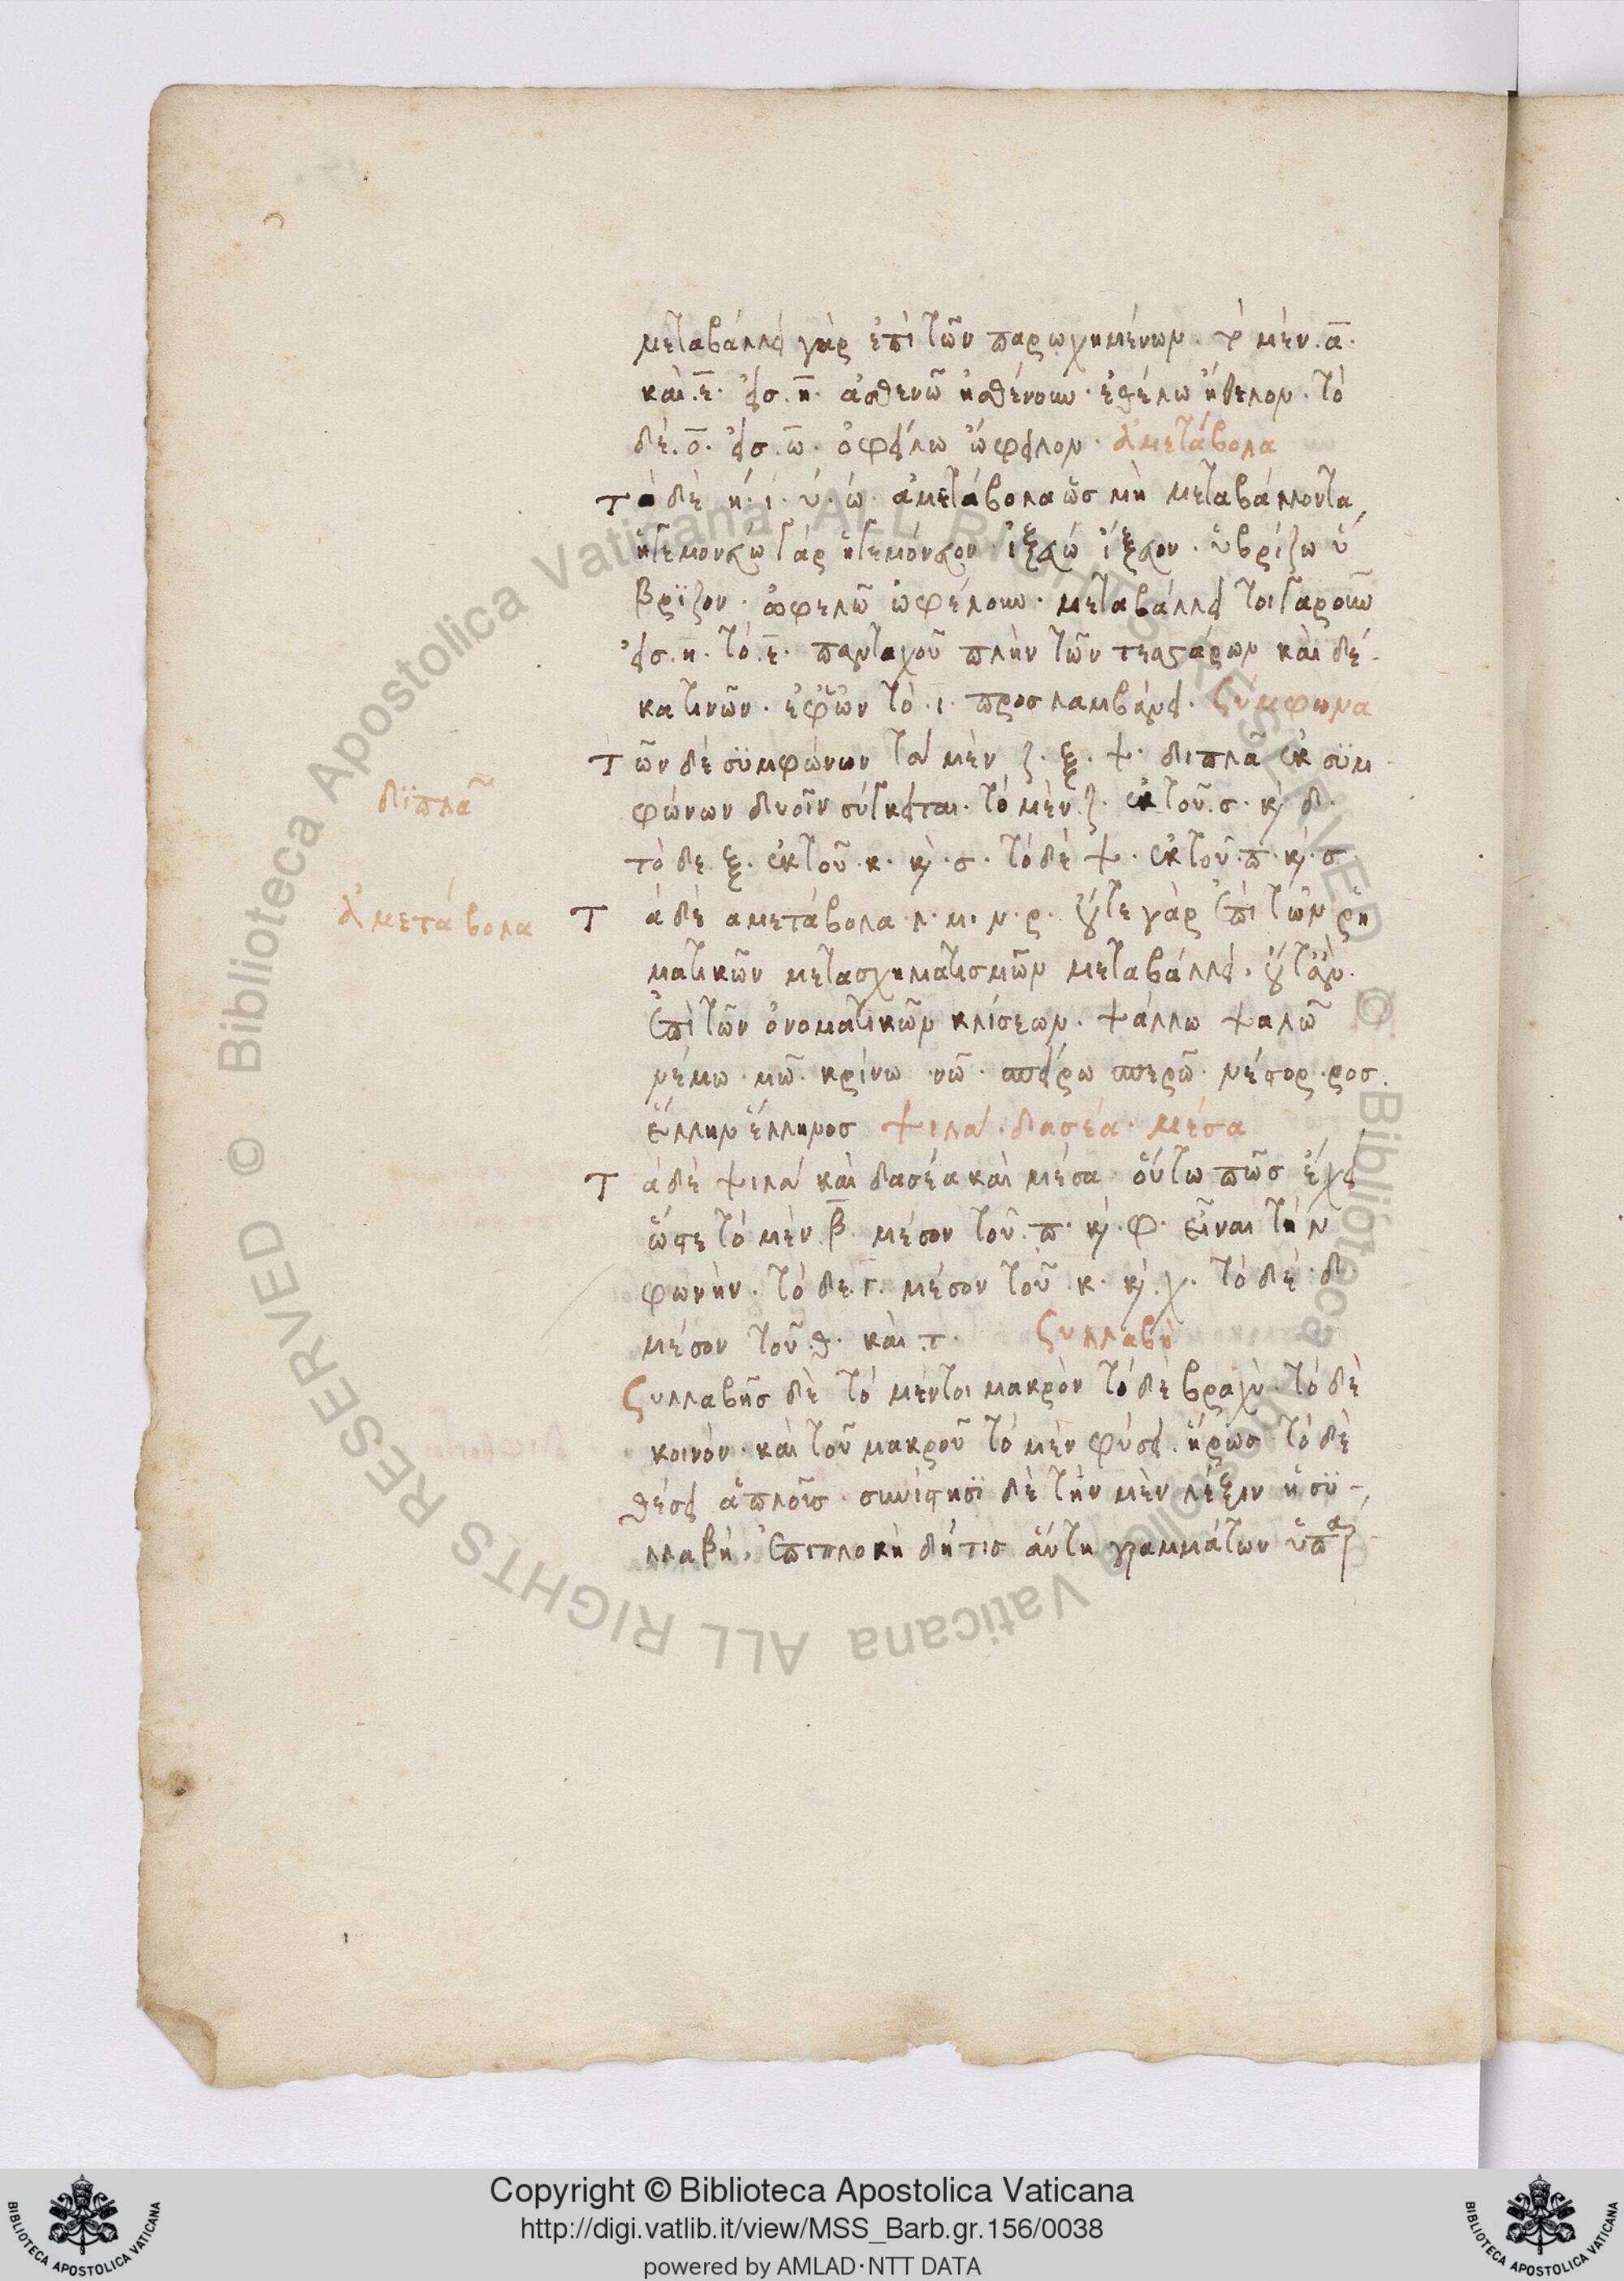 μεταβάλλει γὰρ ἐπὶ τῶν παρῳχημένων. τὸ μὲν .α̅.
καὶ .ε̅. εἰσ .η̅. ἀσθενῶ ἠσθένουν. ἐθέλω ἤθελον. τὸ
δέ .ο̅. εἰσ .ω̅. ὀφείλω ὤφειλον. ἀμετάβολα
Τὰ δὲ η. ι. υ. ω. ἀμετάβολα ὧσ μὴ μεταβάλλοντα,
ἡγεμονεύω γάρ ἡγεμόνευον. ἰξεύω ἴξευον. ὑβρίζω ὕ
βριζον. ὠφελῶ ὠφέλουν. μεταβάλλει τοιγαροῦν
εἰσ .η̅. τό .ε̅. πανταχοῦ πλὴν τῶν τεσσάρων καὶ δέ-
κα τινῶν. ἐφ' ὧν τὸ .ι. προσλαμβάνει. ζύμφωνα
Τῶν δέ συμφώνων τὰ μὲν ζ. ξ. ψ. διπλᾶ ἐκ συμ-
διπλᾶ
φώνων δυοῖν σύγκειται. τό μὲν .ζ. ἐκ τοῦ .σ. κὶ δ.
τὸ δε ξ. ἐκ τοῦ .κ. κὶ .σ. τό δὲ ψ. ἐκ τοῦ .π. κὶ .σ.
ἀμετάβολα
Τ ά δὲ αμετάβολα .λ. μ. ν. ρ. οὔτε γὰρ ἐπὶ τῶν ρη
ματικῶν μετασχηματισμῶν μεταβάλλει. οὔτ' ἂν
ἐπὶ τῶν ὀνοματικῶν κλίσεων. ψάλλω ψαλῶ
νέμω .μῶ. κρίνω .νῶ. σπείρω σπερῶ. νέστορ .ροσ.
ἕλλην ἕλληνοσ ψιλά. δασέα. μέσα
Τ ά δὲ ψιλά καὶ δασέα καὶ μέσα. οὕτω πῶσ ἔχει
ὥστε τὸ μὲν .β̅. μέσον τοῦ .π. κὶ .φ. εἶναι τὴν
φωνήν. τὸ δε .γ. μέσον τοῦ .κ. κὶ .χ. τὸ δὲ .δ.
μέσον τοῦ .θ. καὶ .τ. ζυλλαβὴ
ζυλλαβῆσ δὲ τό μέντοι μακρὸν τό δὲ βραχὺ. τὸ δὲ
κοινόν. καὶ τοῦ μακροῦ τὸ μὲν φύσει. ἥρωσ τὸ δὲ
θέσει ἁπλοῖσ. συνίστησι δὲ τὴν μὲν λέξιν ἡ συ-
λλαβή. ἐπιπλοκὴ δή τισ αὕτη γραμμάτων ὑπά
Copyright © Biblioteca Apostolica Vaticana
http://digi.vatlib.it/view/MSS_Barb.gr.156/0038
powered by AMLAD·NTT DATA
BIBLIOTECA APOSTOLICA VATICANA
BIBLIOTECA APOSTOLICA VATICANA
© Biblioteca Apostolica Vaticana ALL RIGHTS RESERVED © Biblioteca Apostolica Vaticana ALL RIGHTS RESERVED